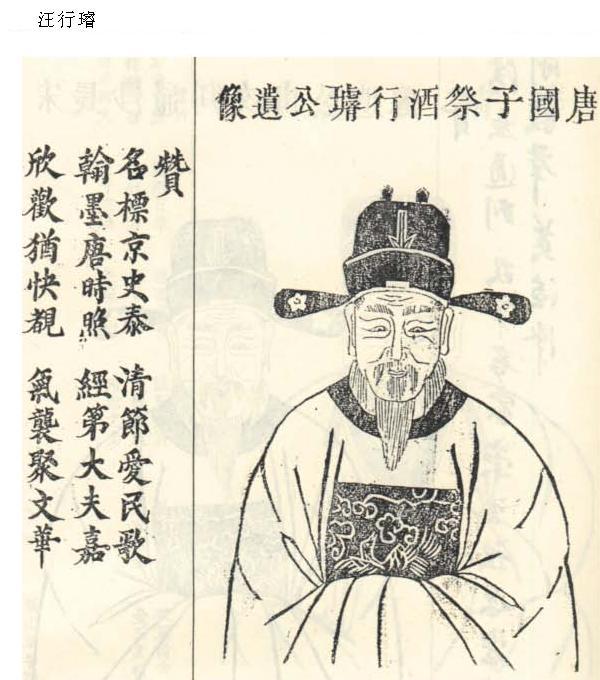 汪行璿
唐國子祭酒行璿公遺像
贊
名標京史泰 清節愛民歌
翰墨唐時照 經第大夫嘉
欣歡猶快覩 氣襲聚文華